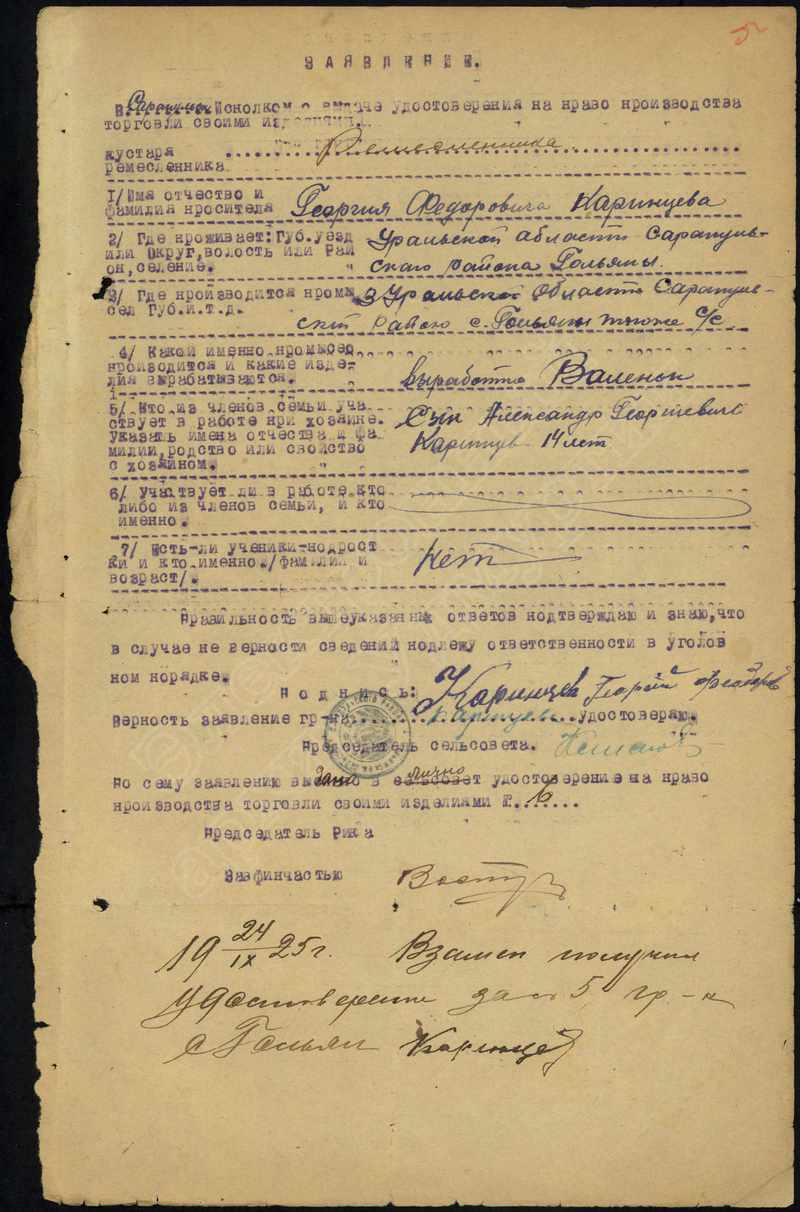 5
ЗАЯВЛЕНИЕ.
В Сарапульск. Исполком о выдаче удостоверения на право производства
торговли своими изделиями.
кустаря
Ремесленника
ремесленника
1/ Имя отчество и Георгия Федоровича Каринцева
фамилия просителя
2/ Где проживает: Губ. уезд Уральской области Сарапуль-
или Округ, волость или Рай ского района Гольяны.
он, селение. "
3/ Где производится промы Уральской области Сарапуль-
сел Губ.и.т.д.
с. Гольяны тоже с/с
4/ Какой именно промысел
производится и какие изде-
лия вырабатываются. выработка Валенок
5/ Кто из членов семьи уча Сын Александр Георгиевич
ствует в работе при хозяине.
Указать имена отчества и фа Каринцев 14 лет
милии, родство или свойство
с хозяином. "
6/ Участвует ли в работе кто
либо из членов семьи, и кто
именно.
7/ Есть-ли ученики-подрост Нет
ки и кто именно./фамилии и
возраст/.
Правильность вышеуказанных ответов подтверждаю и знаю, что
в случае не верности сведений подлежу ответственности в уголов
ном порядке.
Подпись: Каринцев Георгий Федоров
Верность заявление гр-на Каринцева удостоверяю.
Председатель сельсовета.
По сему заявлению выдано в сельсовет лично удостоверение на право
производства торговли своими изделиями №. 6
Председатель Рика
Завфинчастью
19 24/IX 25 г. Взамен получил
удостоверение за № 5 гр-н
с Гольян Каринцев